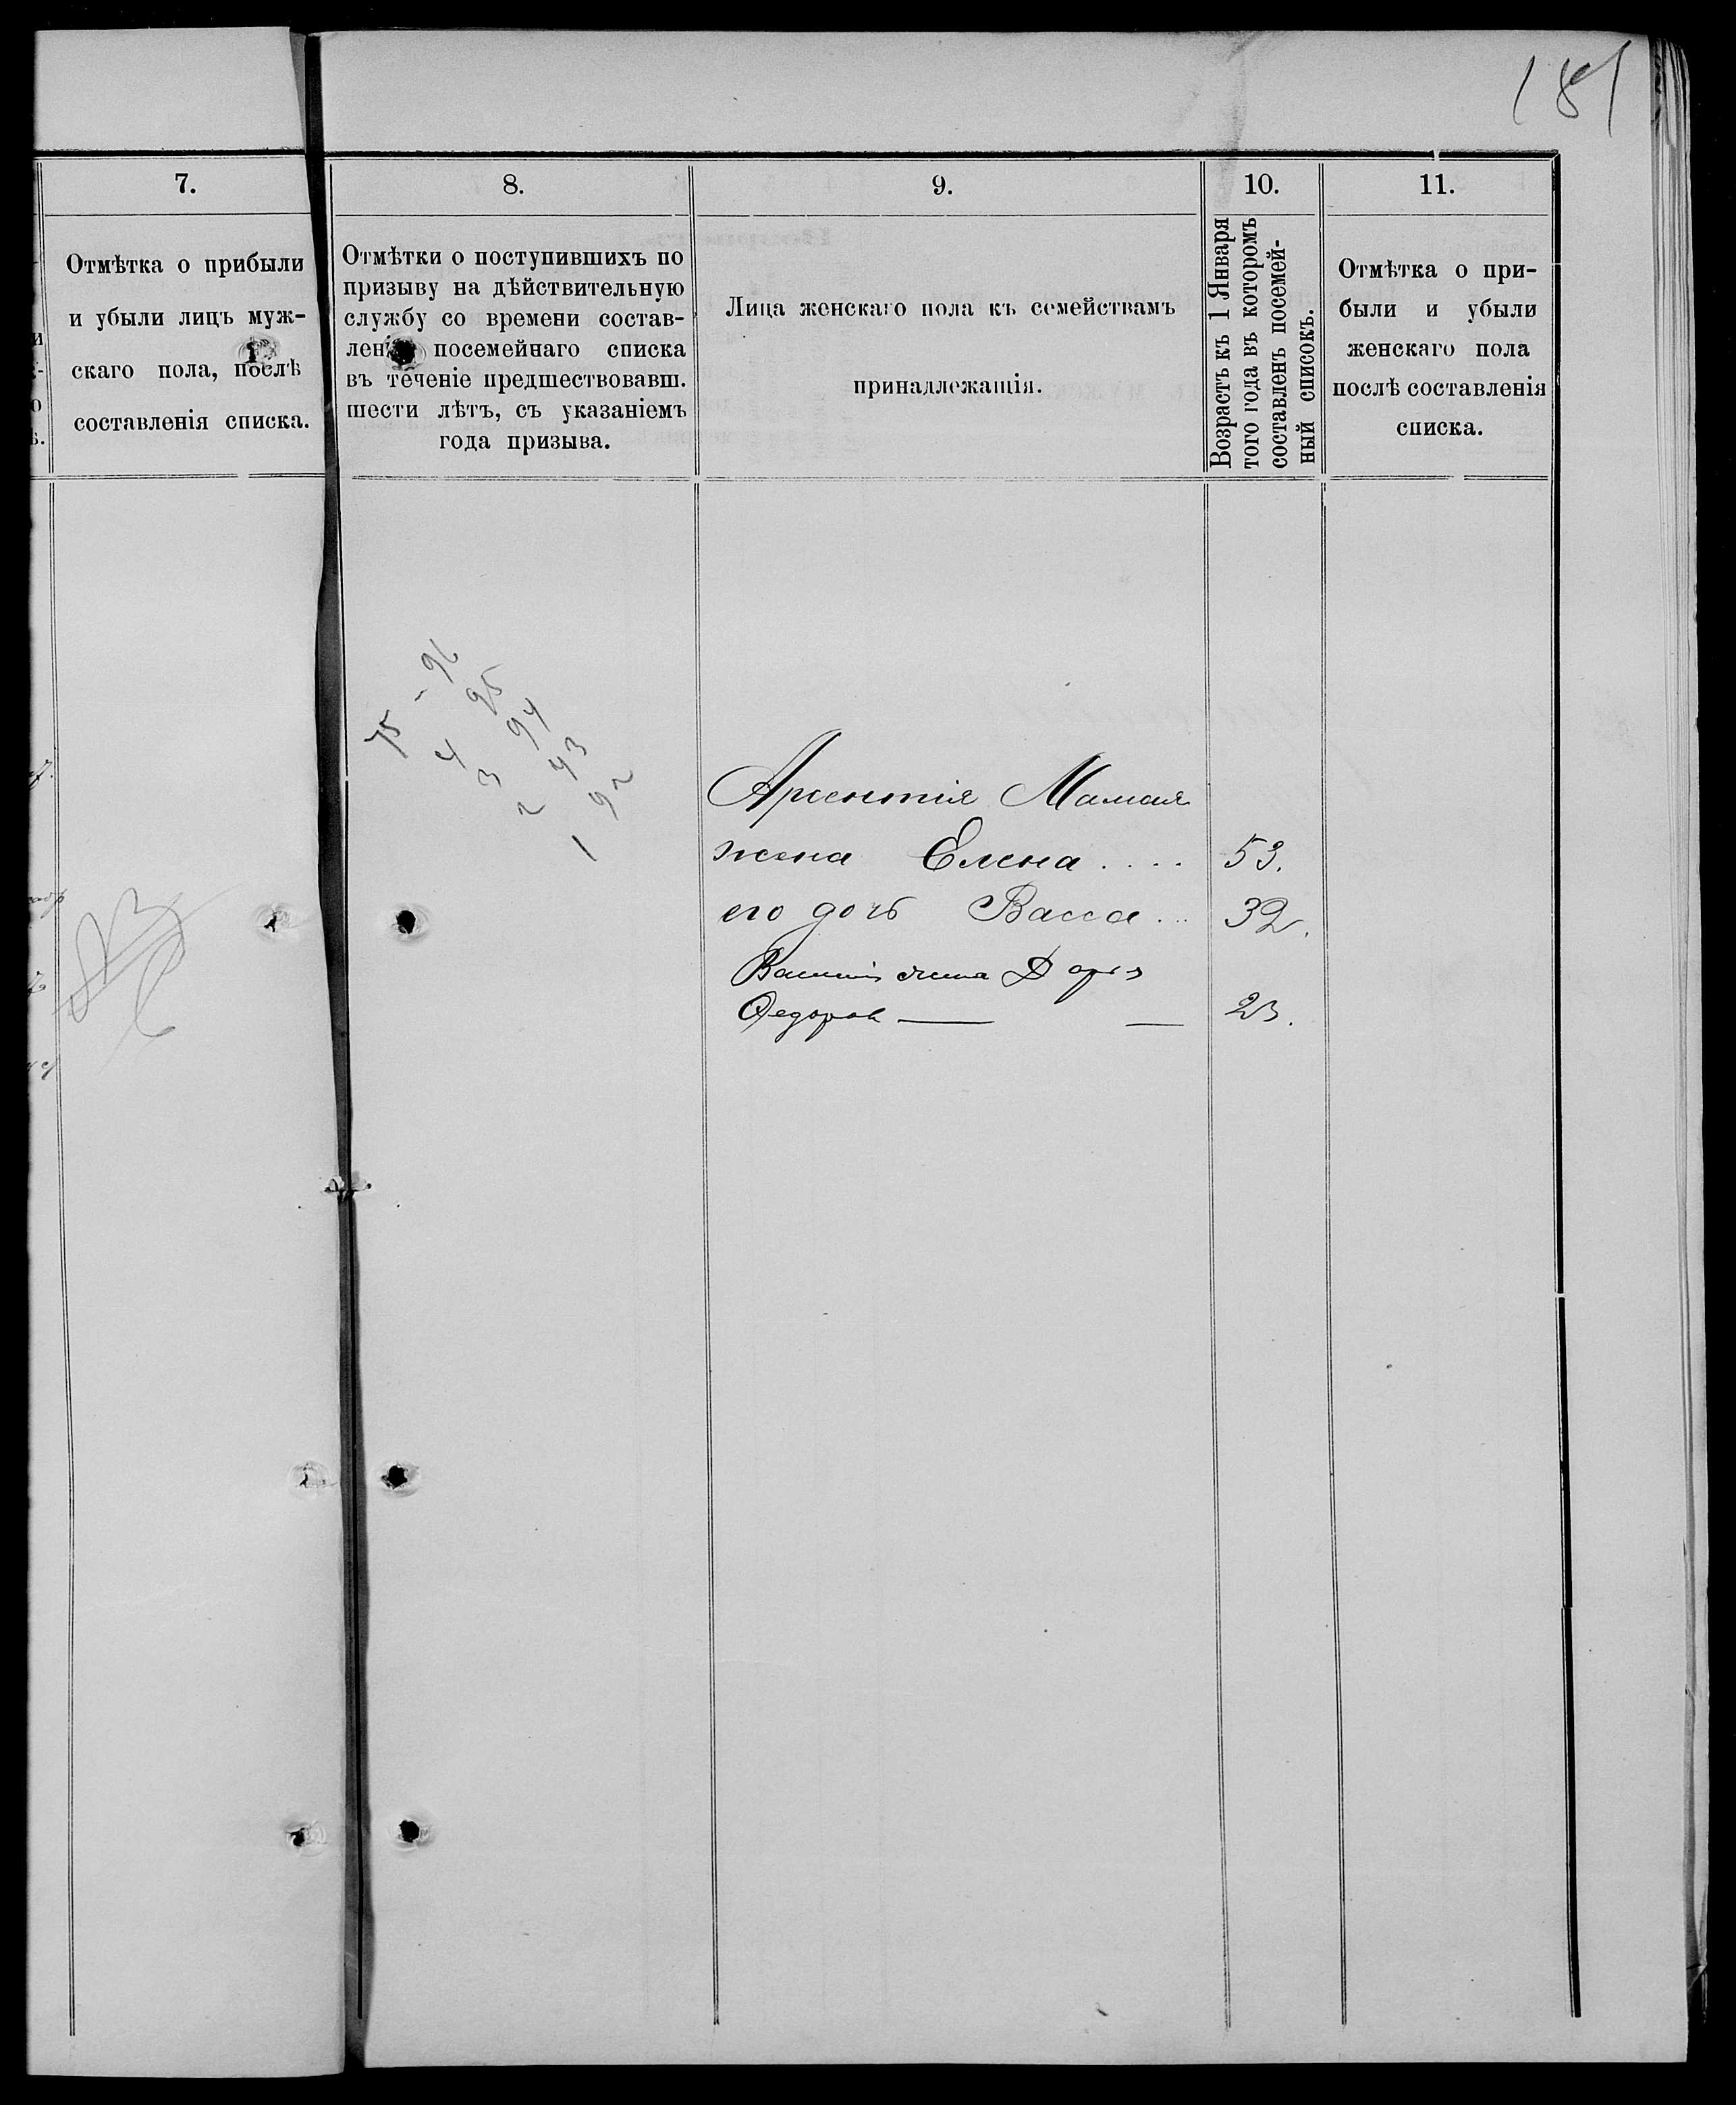 181
7.
Отмѣтка о прибыли
и убыли лицъ муж-
скаго пола, послѣ
составленія списка.
8.
Отмѣтки о поступившихъ по
призыву на дѣйствительную
службу со времени состав-
ленія посемейнаго списка
въ теченіе предшествовавш.
шести лѣтъ, съ указаніемъ
года призыва.
9.
Лица женскаго пола къ семействамъ
принадлежащія.
10.
Возрастъ къ 1 Января
того года въ которомъ
составленъ посемей-
ный списокъ.
11.
Отмѣтка о при-
были и убыли
женскаго пола
послѣ составленія
списка.
75 - 96
4 95
3 94
2 93
1 92
Арсентія Мамая
жена Елена .... 53.
его дочь Васса ... 32.
жена Дарья
Федоров — — 23.